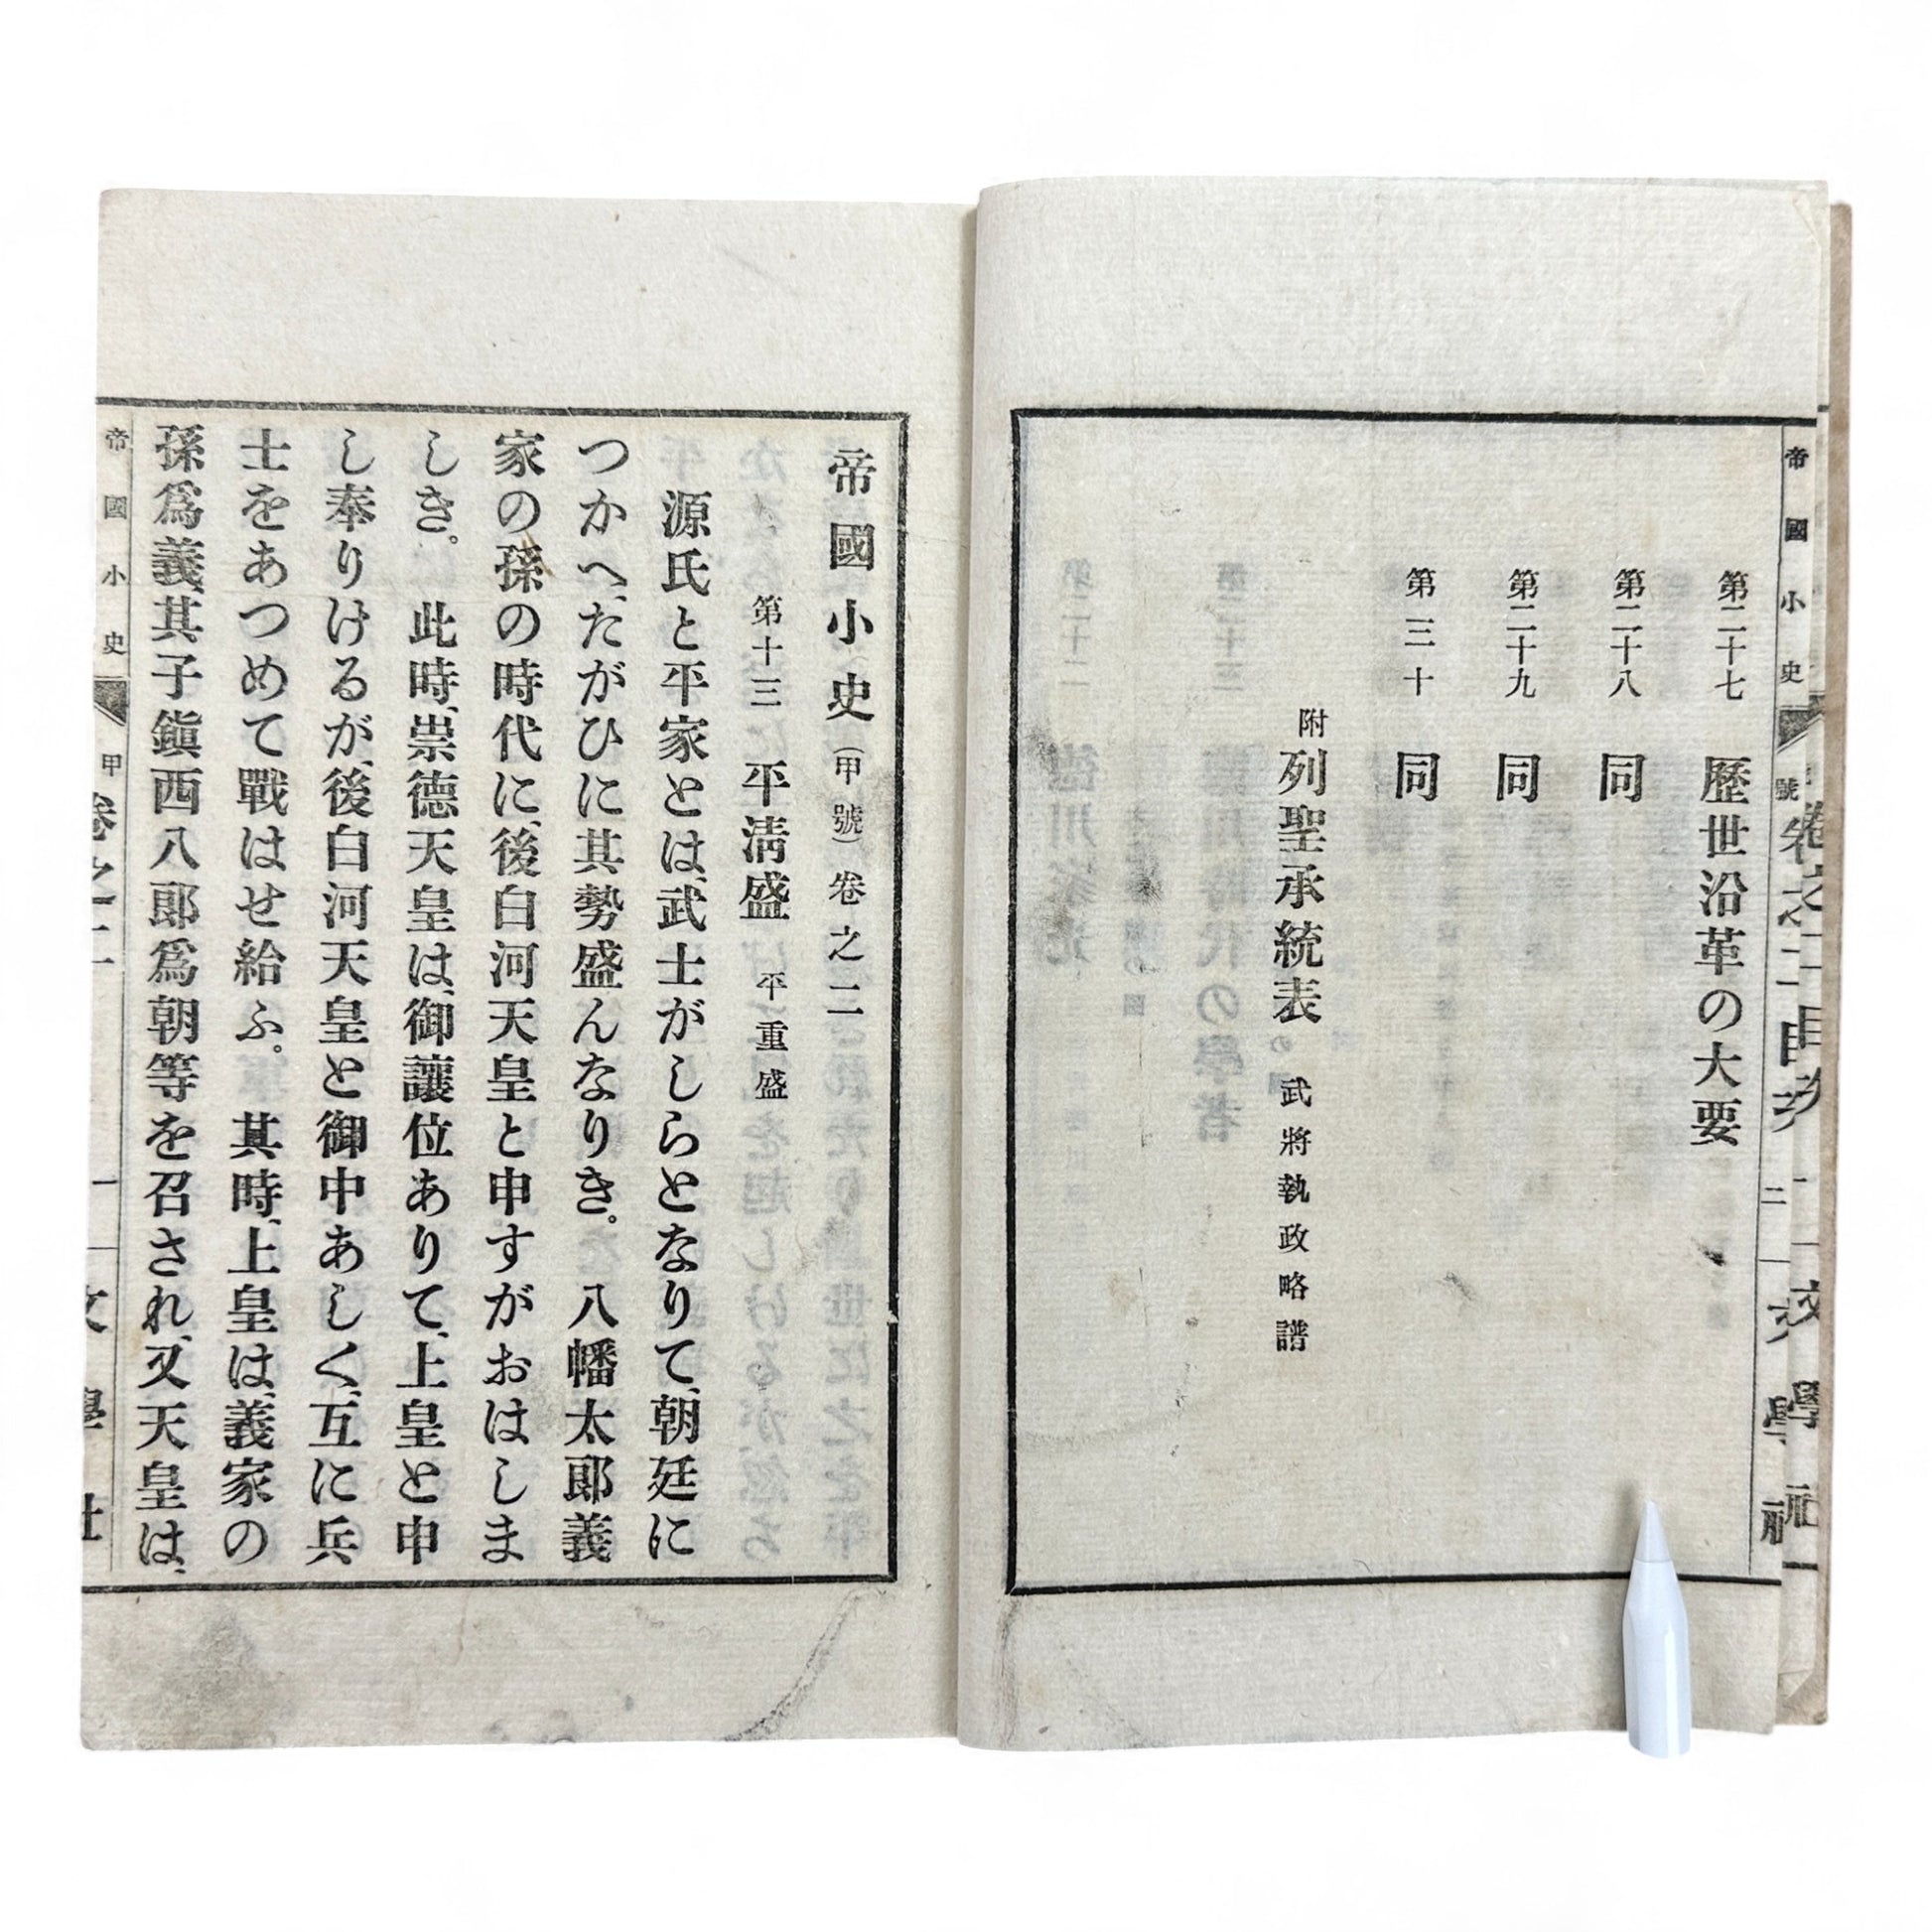 帝國小史
第二十七 歷世沿革の大要
第二十八 同
第二十九 同
第三十 同
附 列聖承統表 武將執政略譜
帝國小史(甲號)卷之二
第十三 平淸盛 平重盛
源氏と平家とは、武士がしらとなりて、朝廷に
つかへ、たがひに其勢盛んなりき。 八幡太郞義
家の孫の時代に、後白河天皇と申すがおはしま
しき。 此時、崇德天皇は、御讓位ありて、上皇と申
し奉りけるが、後白河天皇と御中あしく、互に兵
士をあつめて戰はせ給ふ。 其時、上皇は、義家の
孫爲義、其子鎭西八郞爲朝等を召され、又天皇は、
帝國小史 甲 卷之二 一 文學社